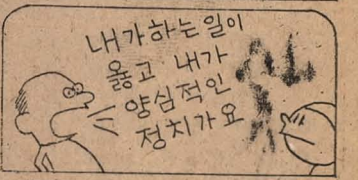 내가하는일이
옳고 내가
양심적인
정치가요